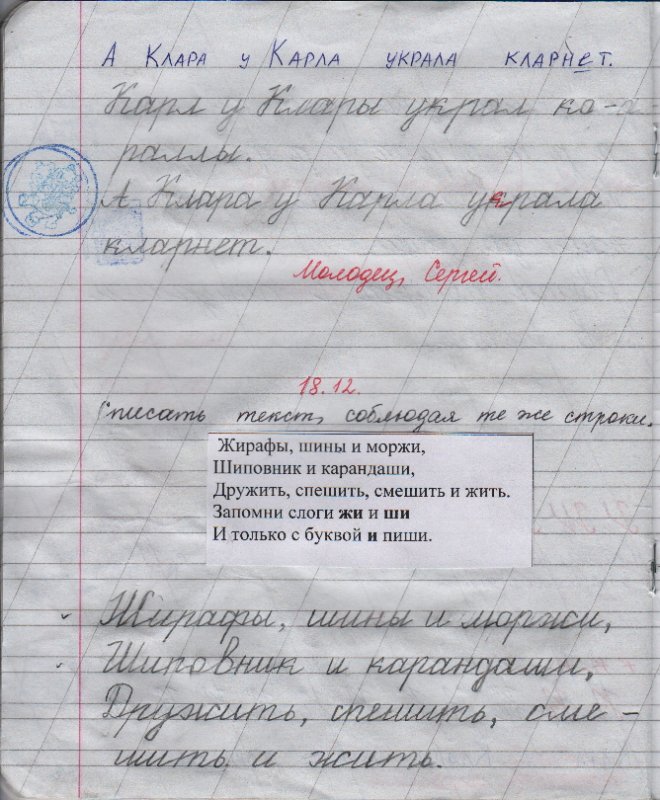 А Клара у Карла украла кларнет.
Карл у Клары украл ко-
раллы.
А Клара у Карла украла
кларнет.
Молодец, Сергей.
18.12.
Списать текст, соблюдая те же строки.
Жирафы, шины и моржи,
Шиповник и карандаши,
Дружить, спешить, смешить и жить.
Запомни слоги жи и ши
И только с буквой и пиши.
Жирафы, шины и моржи,
Шиповник и карандаши,
Дружить, спешить, сме-
шить и жить.